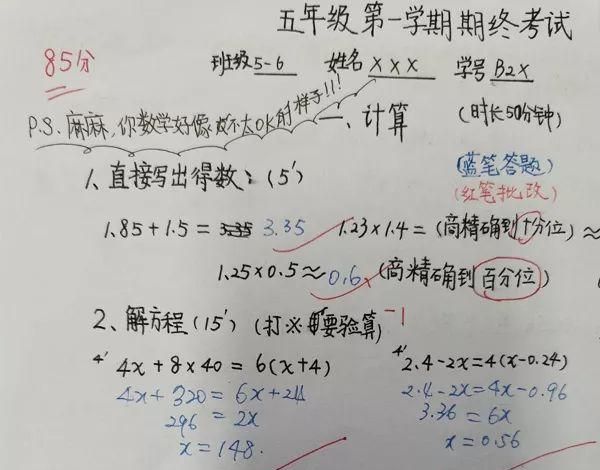 五年级第一学期期终考试
85分
班级 5-6 姓名 XXX 学号 B2X
P.S. 麻麻,你数学好像也不太OK的样子!!!
一、计算 (时长50分钟)
(蓝笔答题)
(红笔批改)
1、直接写出得数:(5')
1.85+1.5= 3.35 1.23×1.4=(商精确到十分位)≈
1.25×0.5≈0.6 (商精确到百分位)
2、解方程(15')(打※要验算) -1
4' 4x+8×40=6(x+4) 4' 2.4-2x=4(x-0.24)
4x+320=6x+24 2.4-2x=4x-0.96
296=2x 3.36=6x
x=148. x=0.56